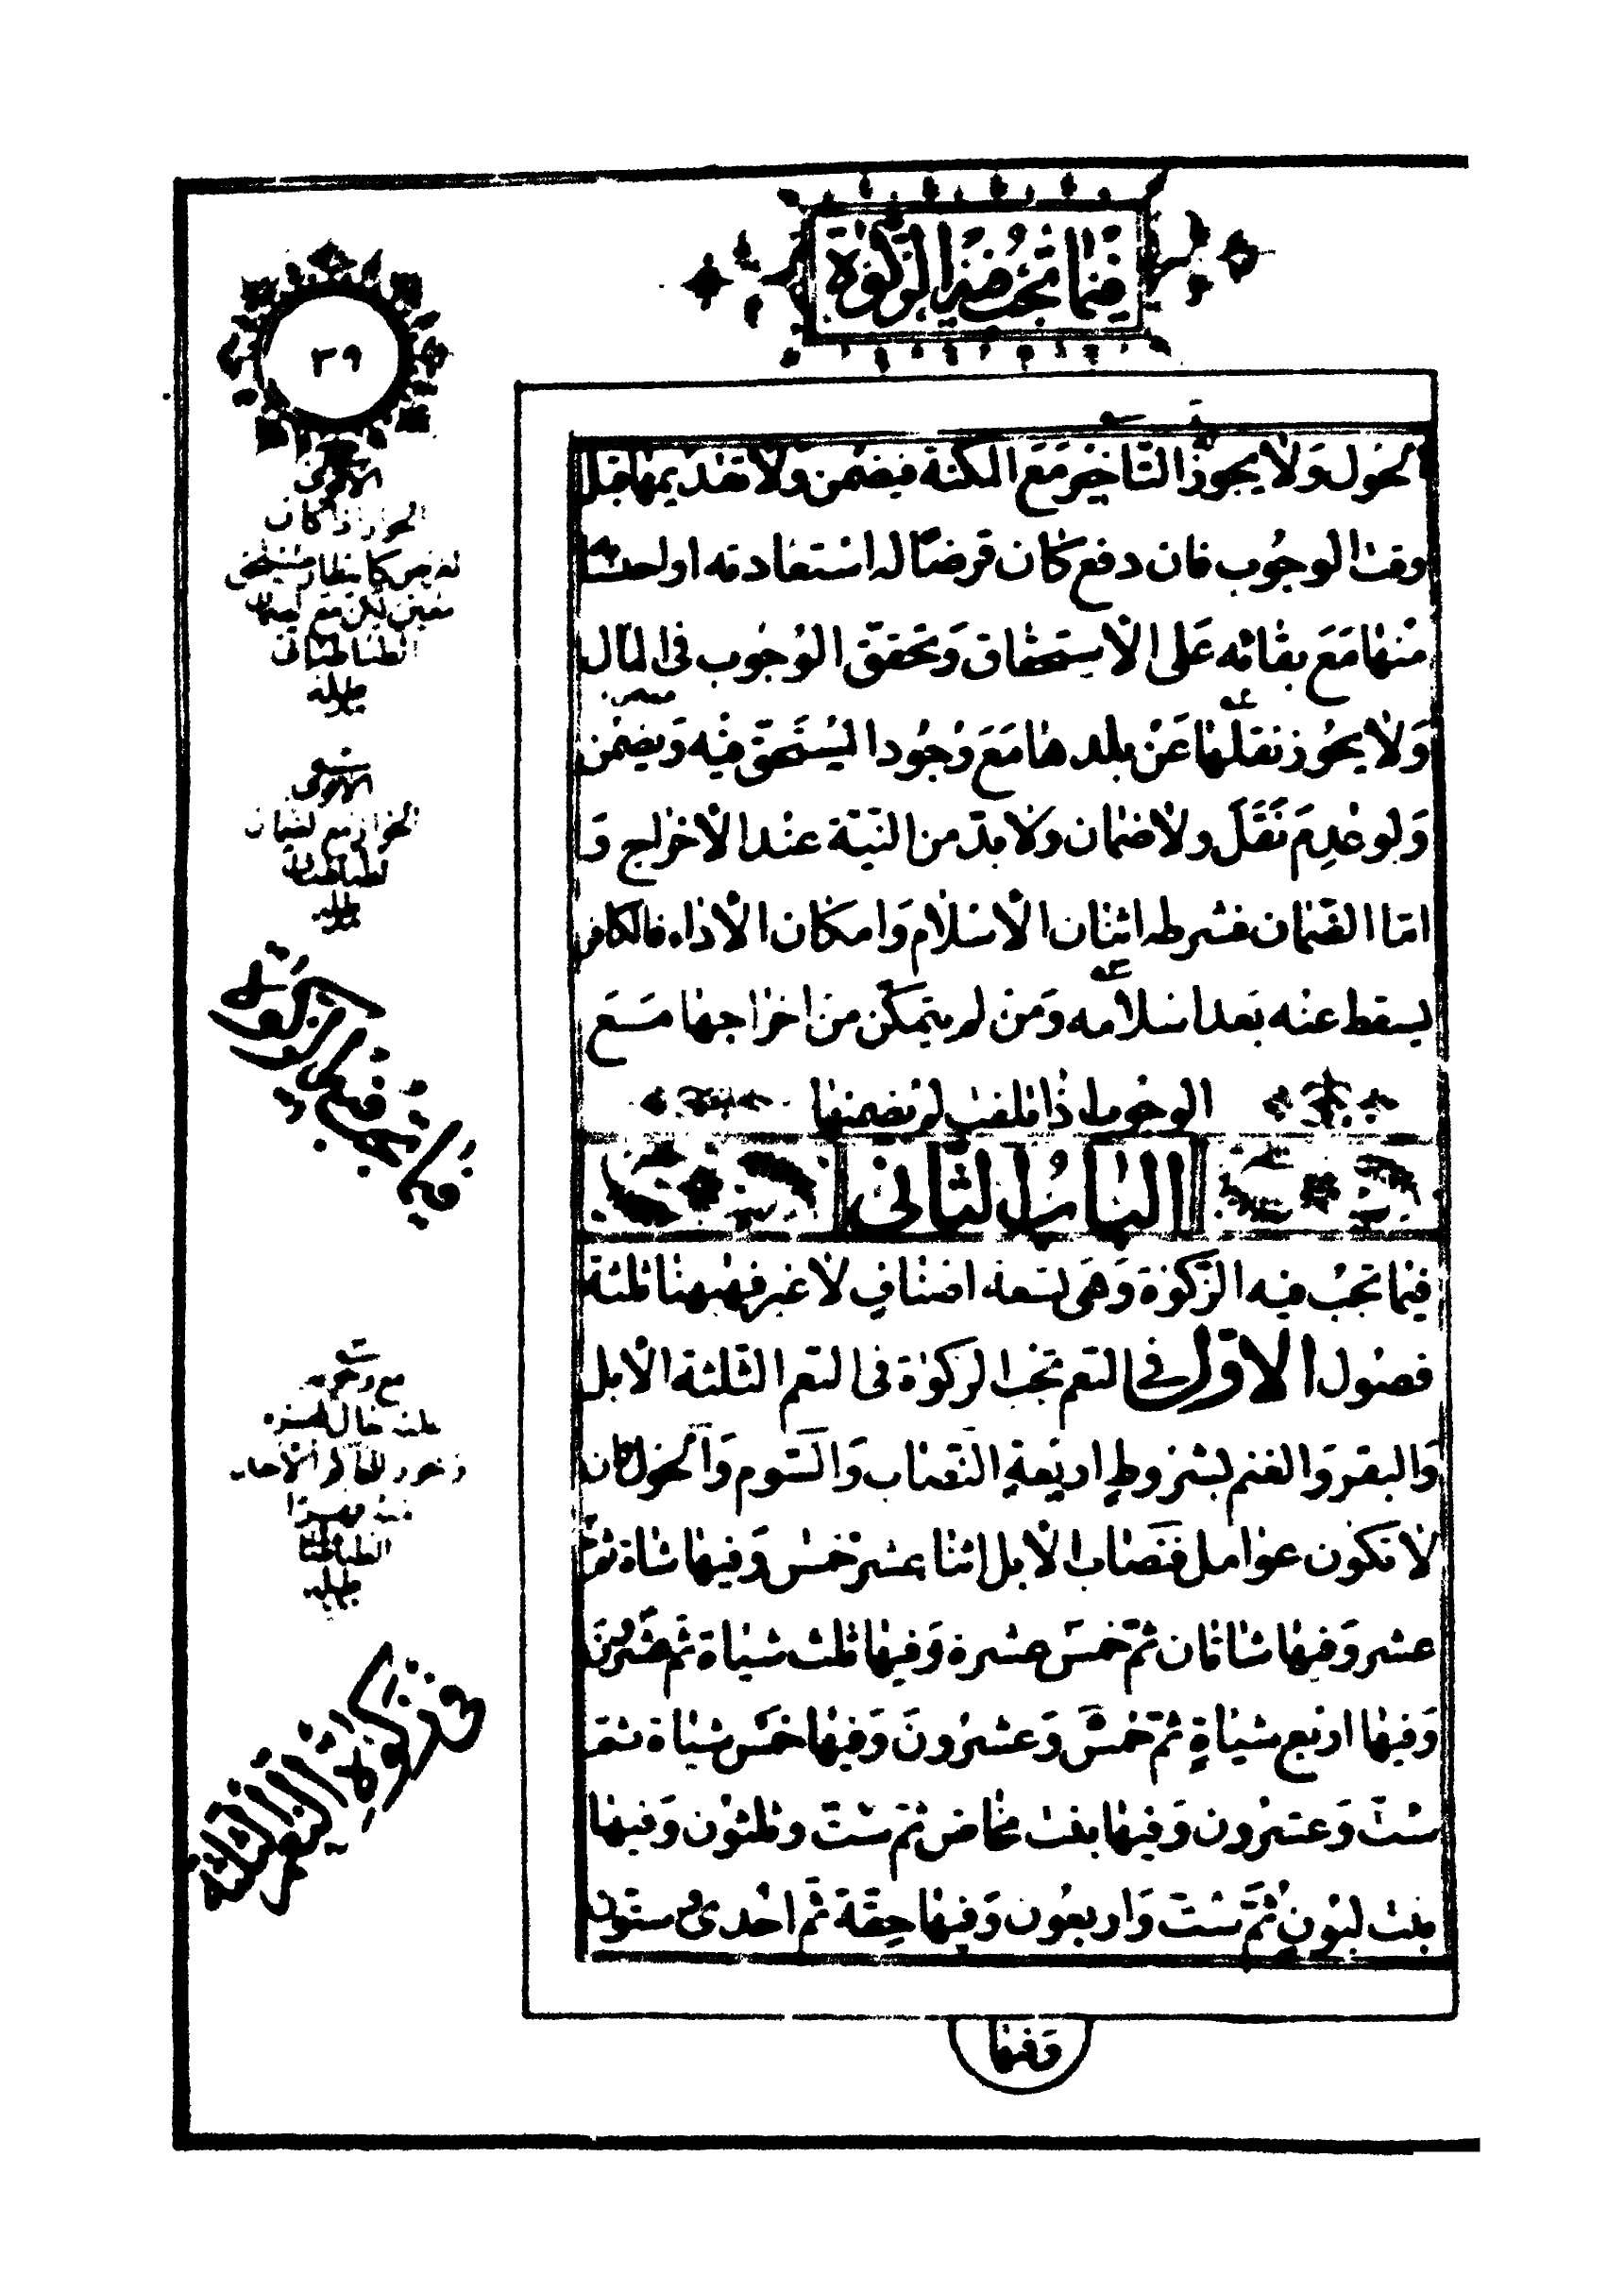 فیما تجب فیه الزکوة
۳۹
الحول ولا یجوز التأخیر مع المکنة فیضمن ولا تقدیمها قبل
وقت الوجوب فان دفع کان قرضا له استعادته او احتسابه
منها مع بقائه علی الاستحقاق و تحقق الوجوب فی المال
ولا یجوز نقلها عن بلدها مع وجود المستحق فیه و یضمن
ولو عدم نقل ولا ضمان ولا بد من النیة عند الاخراج و
اما الضمان فشرطه اثنان الاسلام و امکان الاداء فالکافر
یسقط عنه بعد اسلامه و من لم یتمکن من اخراجها مع
الوجوب اذا تلفت لم یضمنها
الباب الثانی
فیما تجب فیه الزکوة و هی تسعة اصناف لا غیر فهیهنا ثلثة
فصول الاول فی النعم تجب الزکوة فی النعم الثلثة الابل
والبقر و الغنم بشروط اربعة النصاب و السوم و الحول و ان
لا تکون عوامل فنصاب الابل اثنا عشر خمس و فیها شاة ثم
عشر و فیها شاتان ثم خمس عشرة و فیها ثلث شیاة ثم عشرون
و فیها اربع شیاة ثم خمس و عشرون و فیها خمس شیاة ثم
ست و عشرون و فیها بنت مخاض ثم ست و ثلثون و فیها
بنت لبون ثم ست و اربعون و فیها حقة ثم احدی و ستون
و فیها
الاقوی
الاقوی
فیما تجب فیه الزکوة
فی زکوة النعم الثلثة